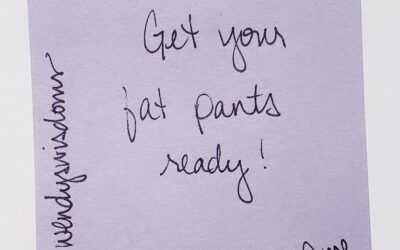 Get your
fat pants
ready!
wendyswisdoms